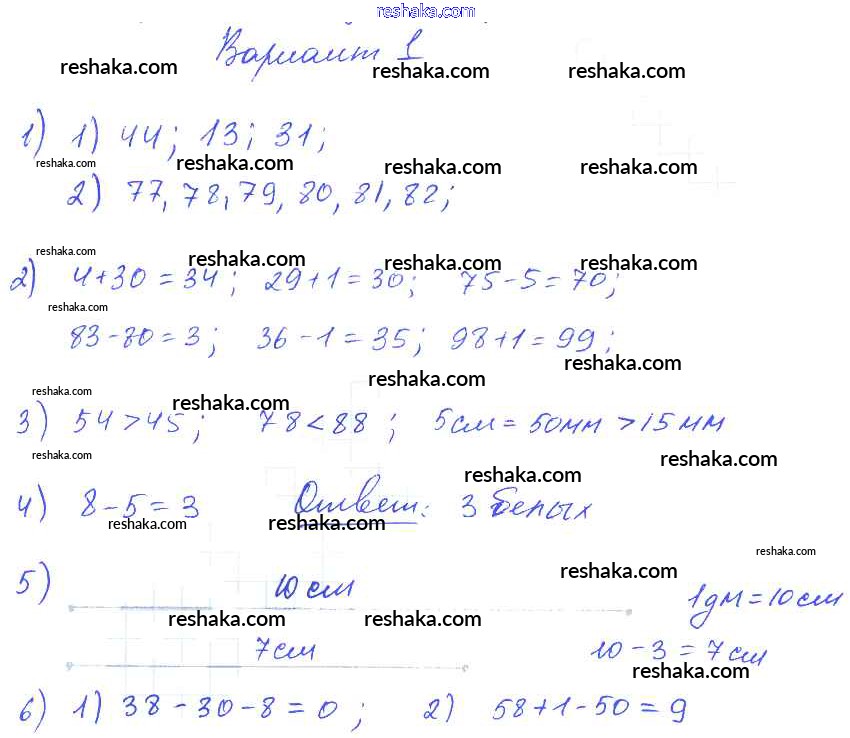 reshaka.com
Вариант 1
reshaka.com reshaka.com reshaka.com
1) 1) 44; 13; 31;
reshaka.com reshaka.com reshaka.com reshaka.com
2) 77, 78, 79, 80, 81, 82;
reshaka.com reshaka.com reshaka.com reshaka.com
2) 4+30=34; 29+1=30; 75-5=70;
reshaka.com
83-80=3; 36-1=35; 98+1=99;
reshaka.com reshaka.com
reshaka.com reshaka.com
3) 54>45; 78<88; 5см=50мм>15мм
reshaka.com reshaka.com
reshaka.com
4) 8-5=3 Ответ: 3 белых
reshaka.com reshaka.com
reshaka.com
5) 10см
reshaka.com
1дм=10см
reshaka.com reshaka.com
7см 10-3=7см
reshaka.com
6) 1) 38-30-8=0; 2) 58+1-50=9